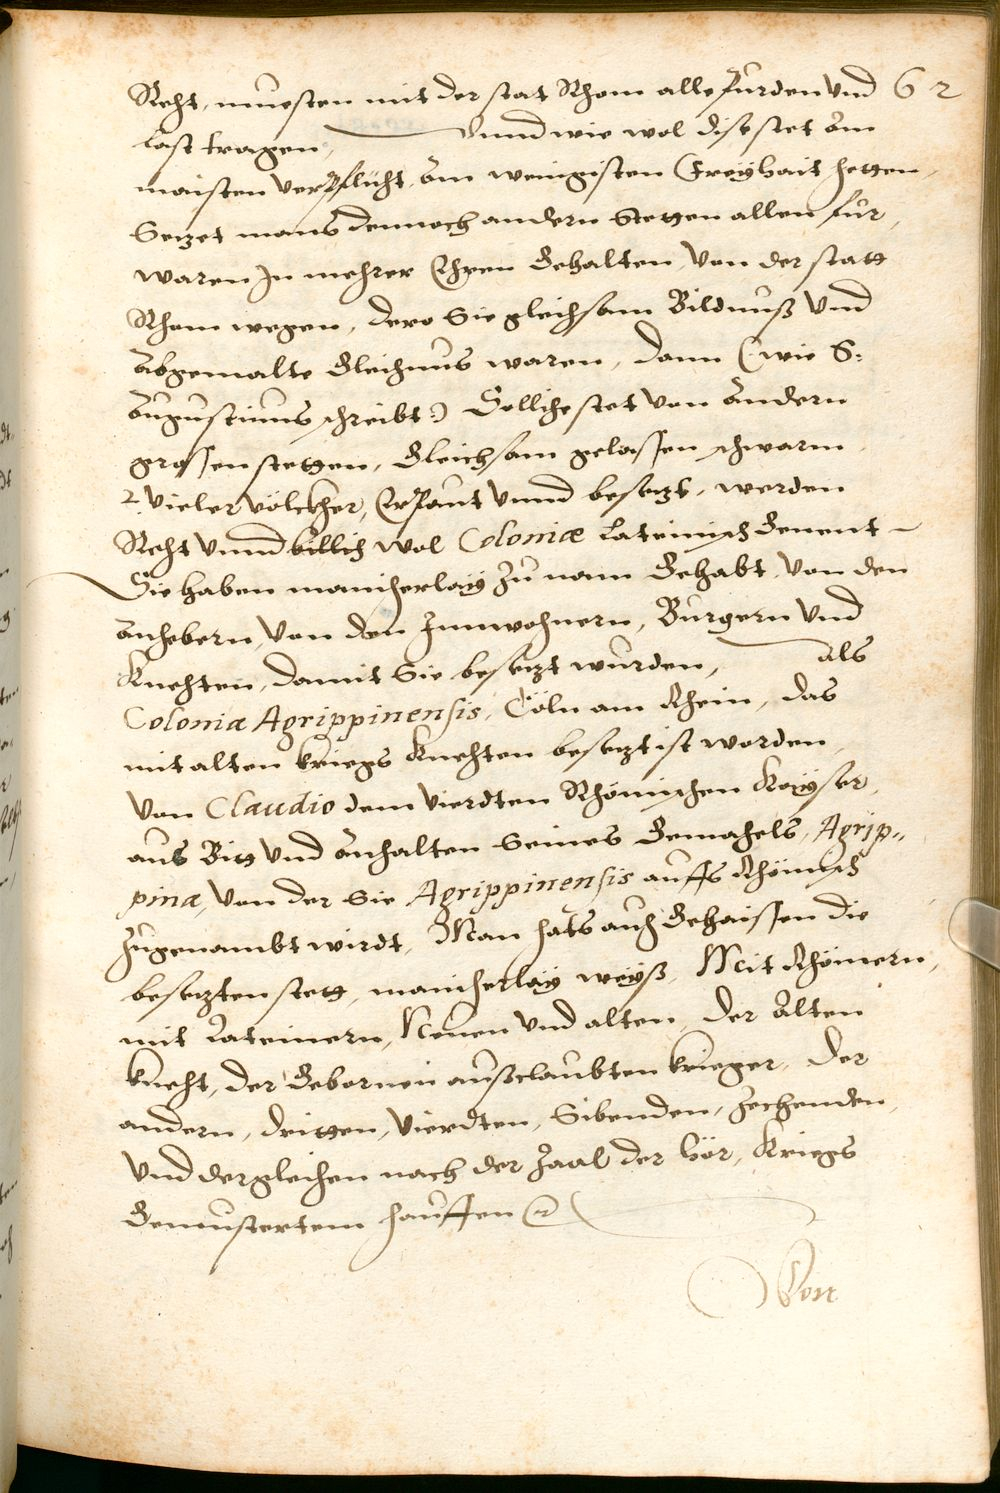 Recht, muesten mit der stat Rhom alle burden Vnd 62
Last tragen, Vnnd wie wol dise stet am
maisten verpflicht, am wenigisten Freyhait hetten,
Setzet mans dennoch andern Stetten allen für,
waren In mehrer Ehren Gehalten, Von der statt
Rhom wegen, dero Sie gleichsam Bildnuß Vnd
Abgemalte Gleichnus waren, dann (wie S:
Augustinus schreibt:) Solliche stet Von Andern
grossen stetten, Gleichsam gelassen schwarm
Vieler völckher, Erpaut Vnnd besetzt, werden
Recht Vnnd billich wol Coloniæ Lateinisch Genent
Sie haben mancherlay Zu nam Gehabt, Von den
Anhebern, Von den Innwohnern, Burgern Vnd
Knechten, damit Sie besetzt wurden, als
Coloniæ Agrippinensis, Cöln am Rhein, das
mit alten kriegs Knechten besetzt ist worden,
Von Claudio dem Vierdten Rhömischen Kayser,
aus Bitt Vnd Anhalten Seines Gemahels, Agrip„
pinæ, Von der Sie Agrippinensis auffs Rhömisch
Zugenambt wirdt, Man hats auch Gehaissen die
besetzten stett, mancherlay weyß, Mit Rhömern,
mit Lateinern, Neuen Vnd alten, der Alten
knecht, der Gebornen außclaubten krieger, der
andern, dritten, Vierdten, Sibenden, Zechenden,
Vnd dergleichen nach der Zaal der hör, Kriegs
Gemustertem hauffen
Von